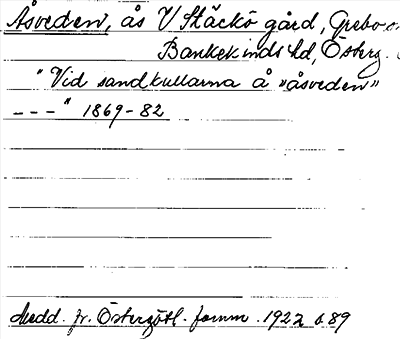 Åsveden, ås V Stäckö gård, Grebo
Bankekinds hd, Österg.
"Vid sandkullarna å "åsveden"
---" 1869-82
Medd. fr. Östergötl. fornm. 1922 s. 89